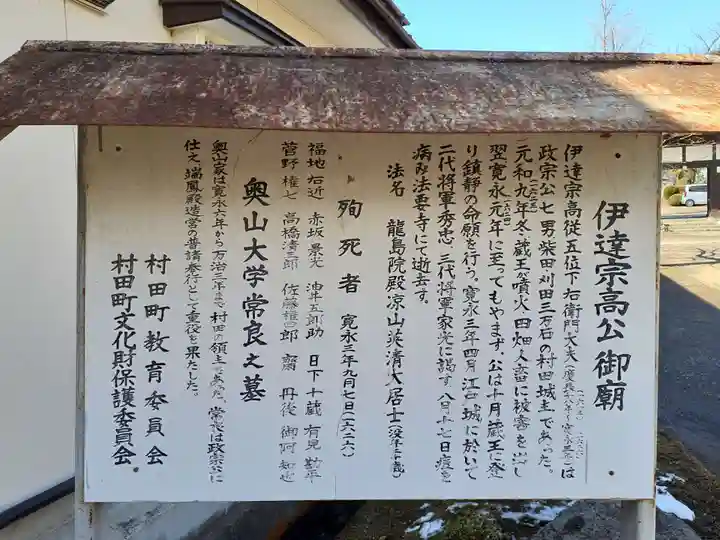 伊達宗高公御廟
伊達宗高従五位下右衛門大夫(慶長十八年~寛永三年)は
(一六一三) (一六二六)
政宗公七男柴田刈田三万石の村田城主であった。
元和九年冬、蔵王が噴火、四畑人畜に被害を出し
(一六二三)
翌寛永元年に至ってもやまず、公は十月蔵王に登
(一六二四)
り鎮静の命願を行う。寛永三年四月江戸城に於いて
二代将軍秀忠、三代将軍家光に謁す。八月十七日痘を
病み法要寺にて逝去す。
法名 龍島院殿涼山英清大居士(没年二十歳)
殉死者 寛永三年九月七日(一六二六)
福地右近 赤坂景光 油井五郎助 日下十蔵 有見勘平
菅野権七 高橋清三郎 佐藤権四郎 齋丹後 御阿知近
奥山大学常良之墓
奥山家は寛永六年から万治三年まで村田の領主であった。常良は政宗公に
仕え、瑞鳳殿造営の普請奉行として重役を果たした。
村田町教育委員会
村田町文化財保護委員会